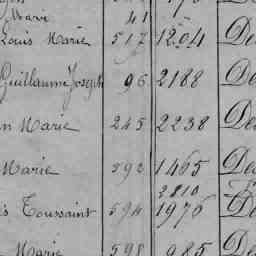 Marie 41
Louis Marie 517 1204 De
Guillaume Joseph 96 2188 De
n Marie 245 2238 De
Marie 592 1465 De
2810
s Toussaint 594 1976 De
Marie 598 985 De